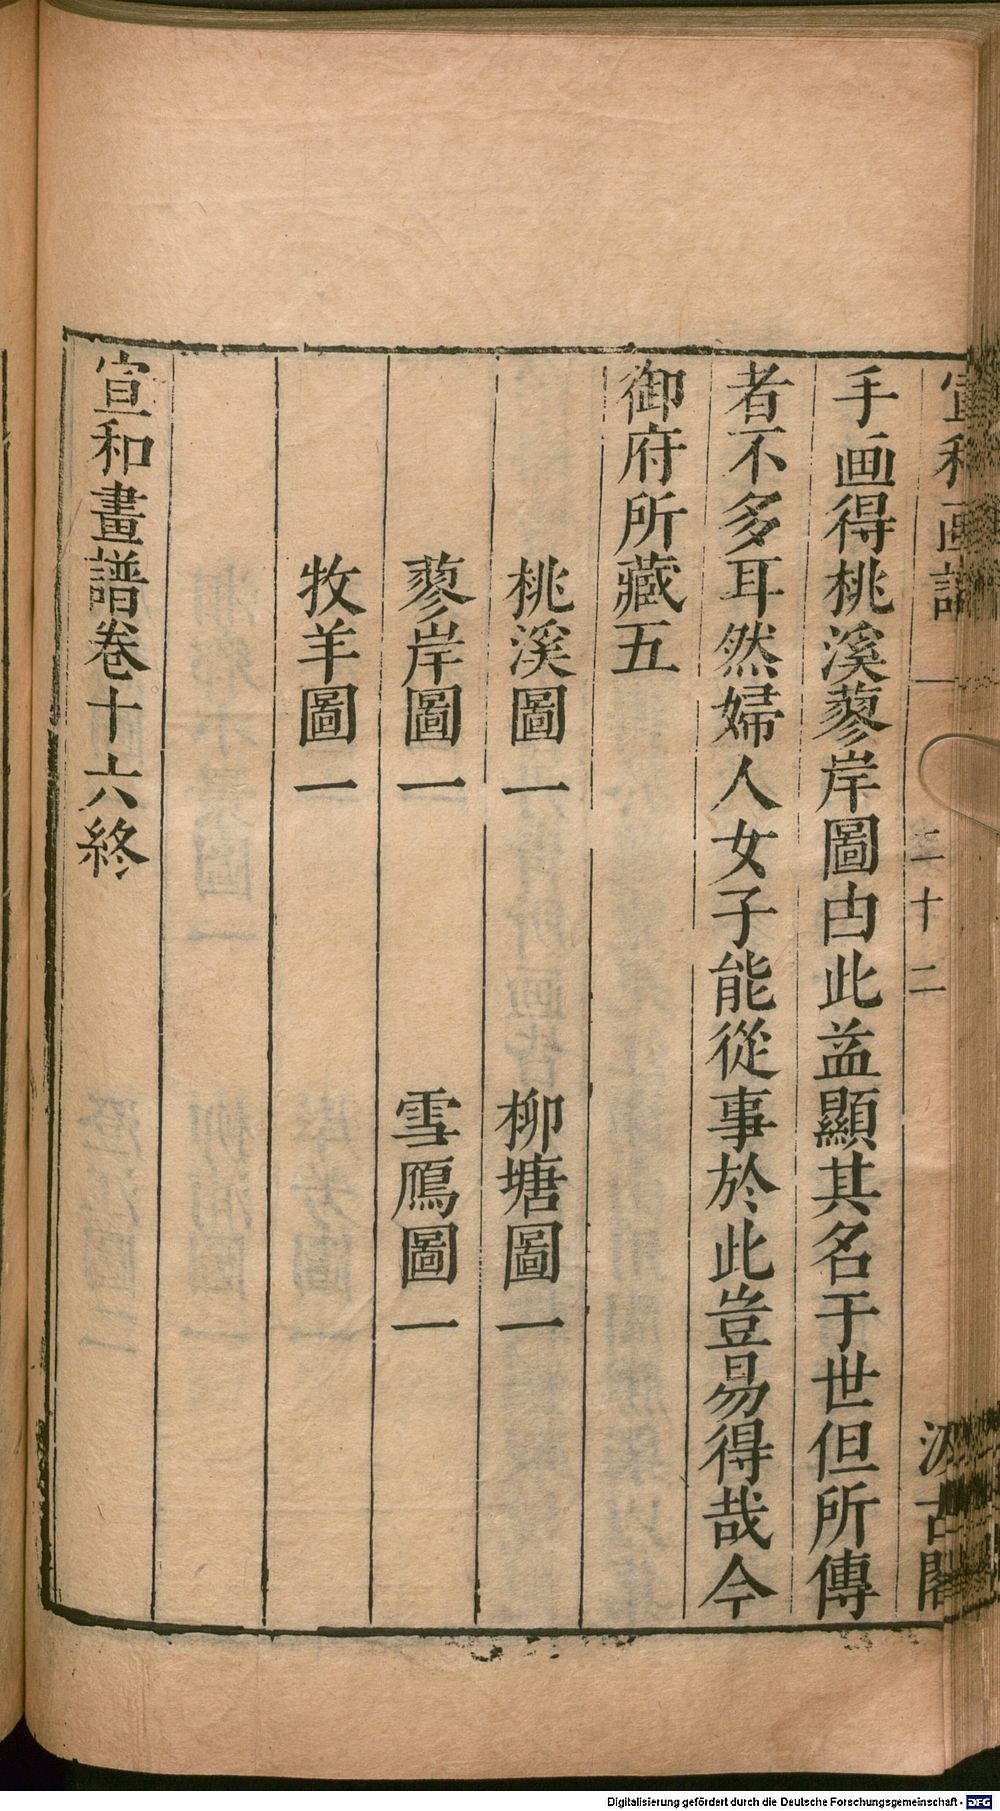 宣和画譜 二十二 汲古閣
手画得桃溪蓼岸圖由此益顯其名于世但所傳
者不多耳然婦人女子能從事於此豈易得哉今
御府所藏五
桃溪圖一 柳塘圖一
蓼岸圖一 雪鴈圖一
牧羊圖一
宣和畫譜卷十六終
Digitalisierung gefördert durch die Deutsche Forschungsgemeinschaft - DFG